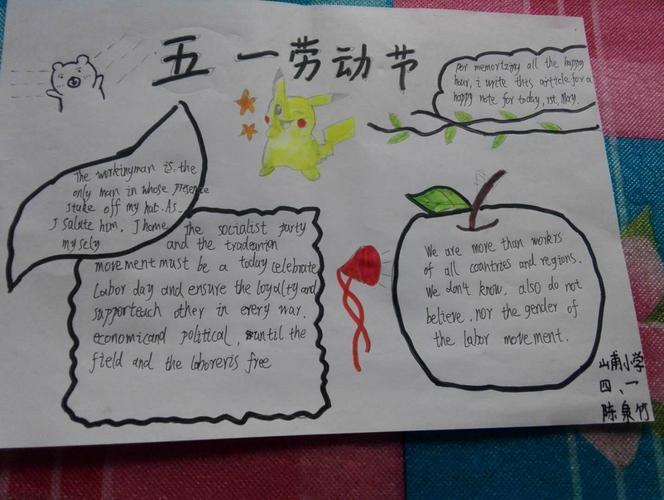 五一劳动节
for memortzing all the happy
hour, i write this article for a
happy note for today, 1st, May.
The workingman is the
only man in whose presence
I take off my hat. As
I salute him, I home
mysely
The socialist party
and the tradeunion
movement must be a today celebrate
Labor day and ensure the loyalty and
supporteach other in every war.
economicand political, until the
field and the laboreris free
We are more than workers
of all countries and regions.
We don't know. also do not
believe. nor the gender of
the labor movement.
山甫小学
四、一
陈泉竹